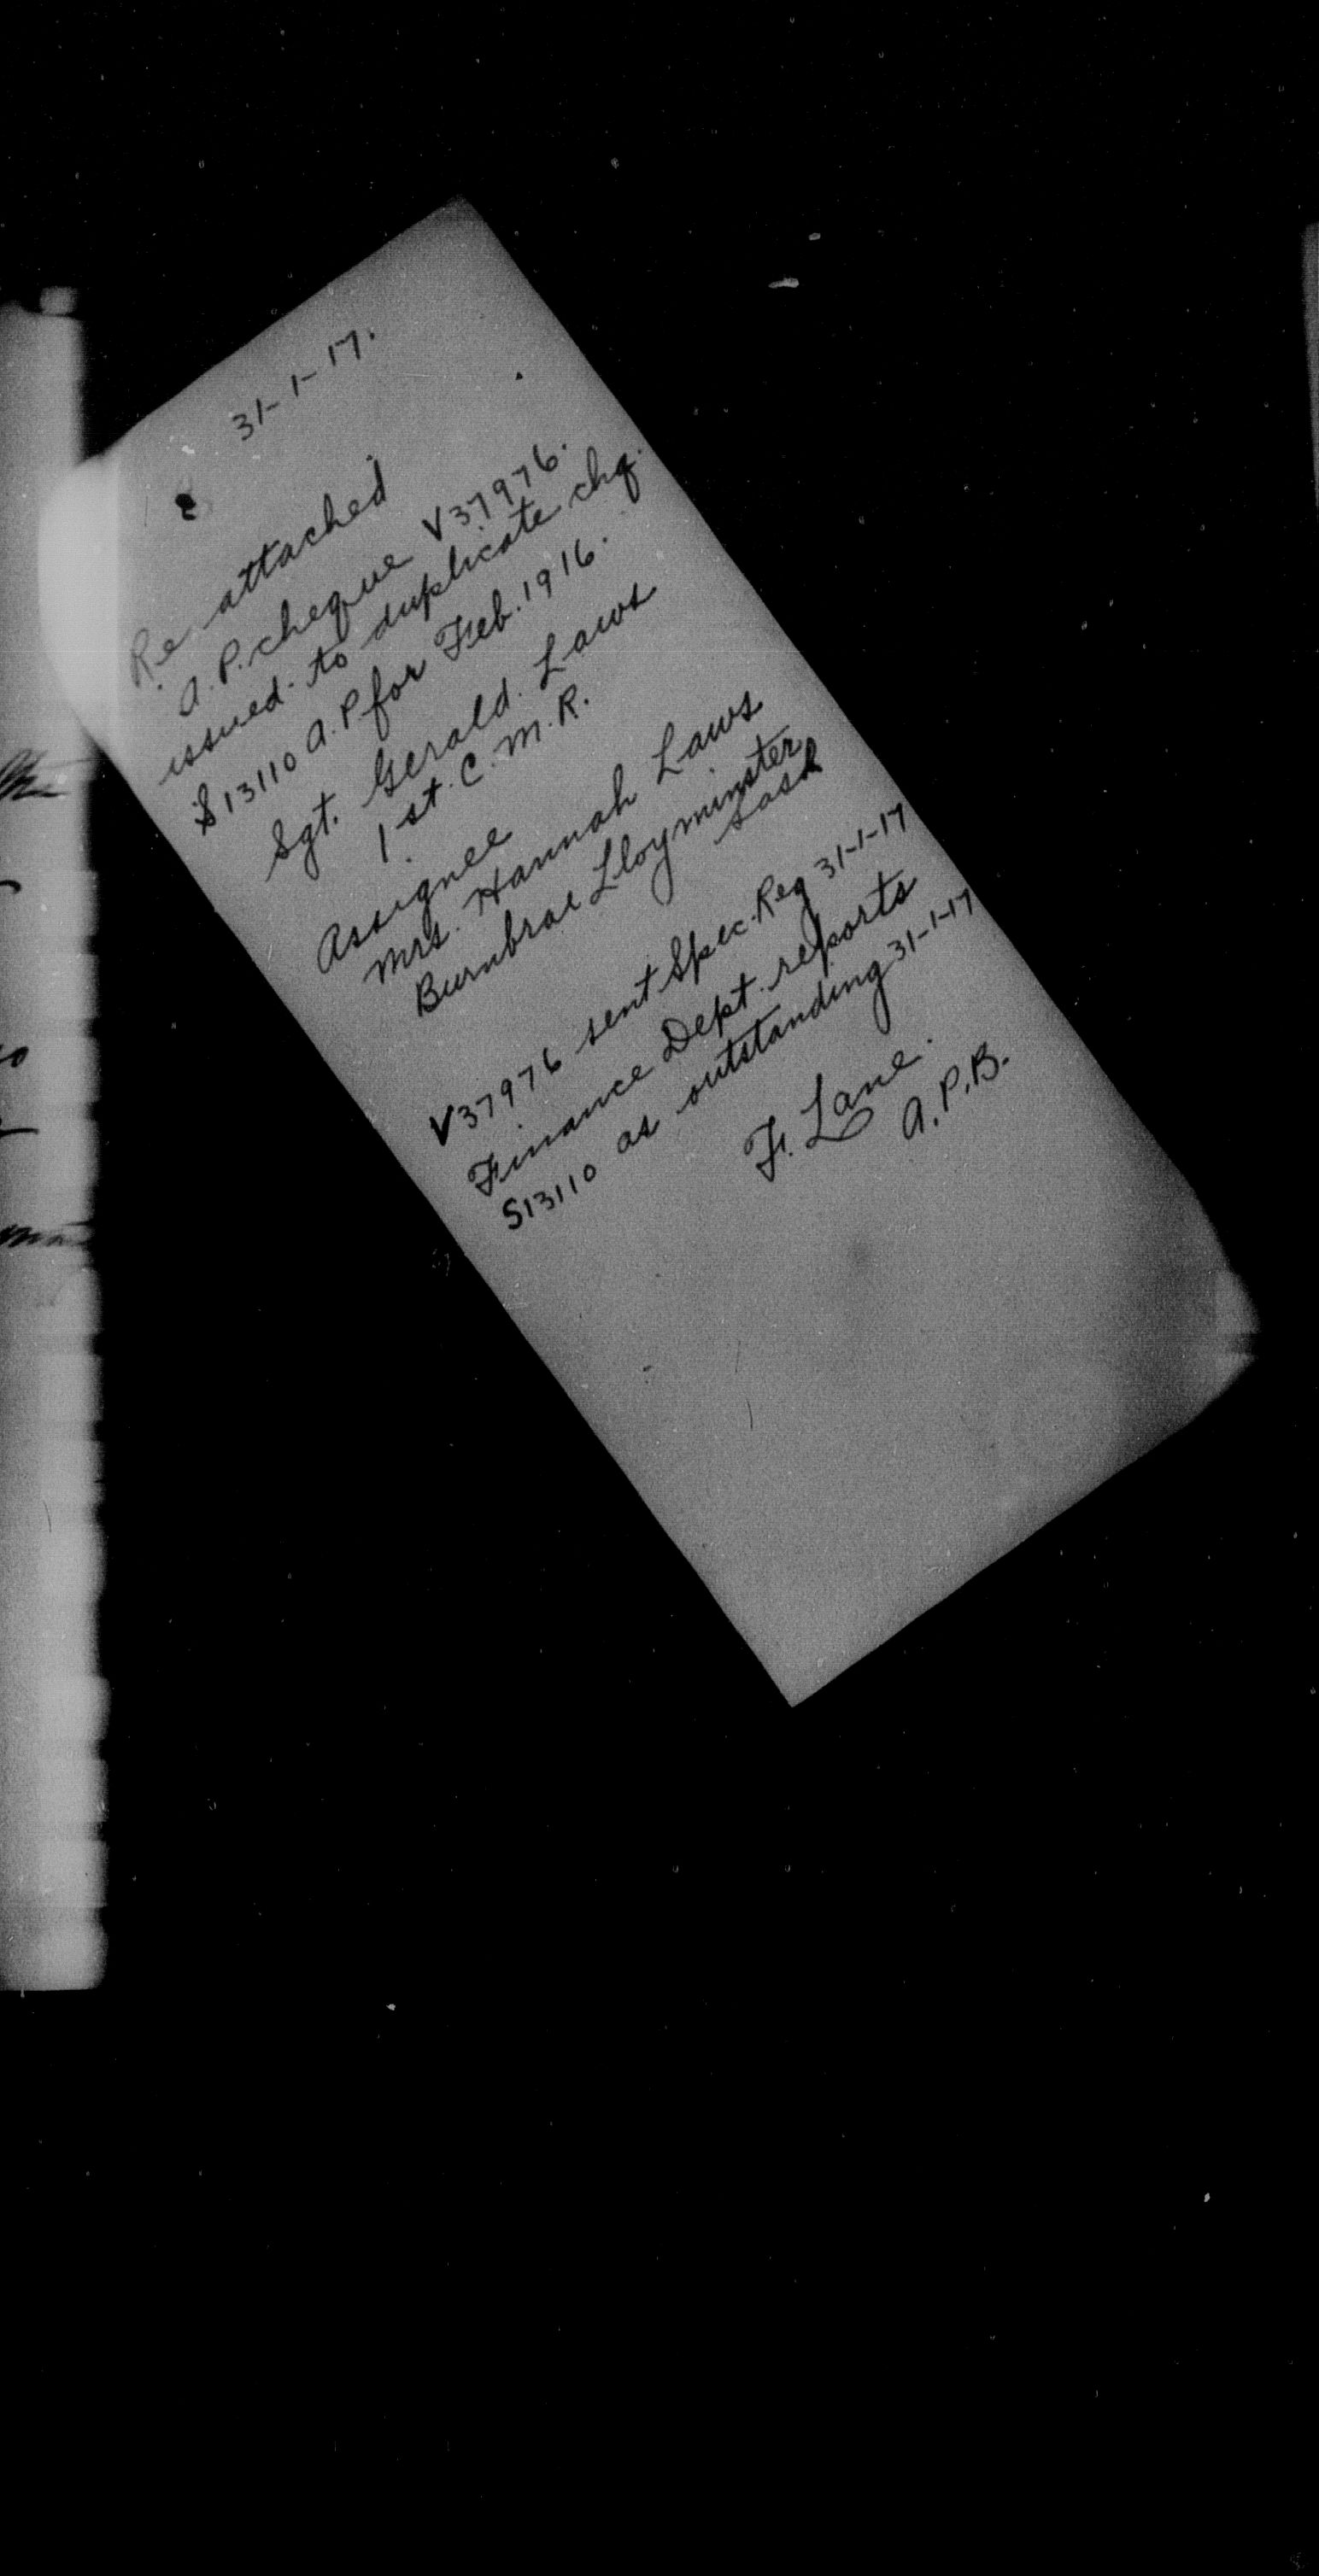 31-1-17.
Re attached
A.P. cheque V37976.
issued to duplicate chq.
S13110 A.P. for Feb. 1916.
Sgt. Gerald. Laws
1st. C. M. R.
Assignee
Mrs. Hannah Laws
Burnbrae Lloyminster
Sask
V37976 sent Spec. Reg 31-1-17
Finance Dept. reports
S13110 as outstanding 31-1-17
F. Lane.
A.P.B.